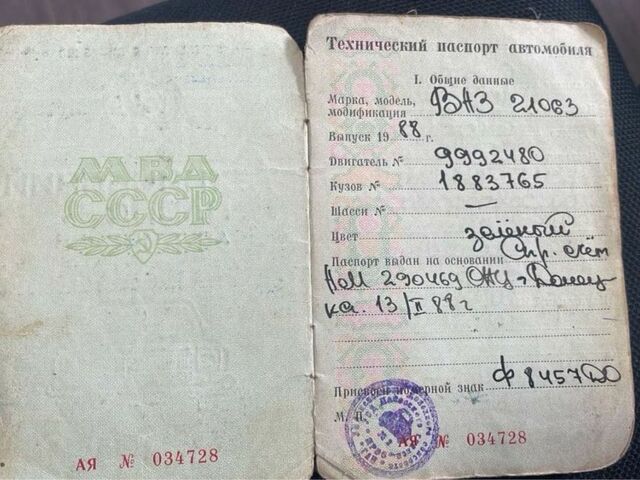 МВД
СССР
АЯ № 034728
Технический паспорт автомобиля
I. Общие данные
Марка, модель, ВАЗ 21063
модификация
Выпуск 19 88 г.
Двигатель № 9992480
Кузов № 1883765
Шасси № —
Цвет зелёный
Паспорт выдан на основании Спр. счёт
290469
ка. 13/II 88 г
Присвоен номерной знак Ф 8457 ДО
М. П.
АЯ № 034728